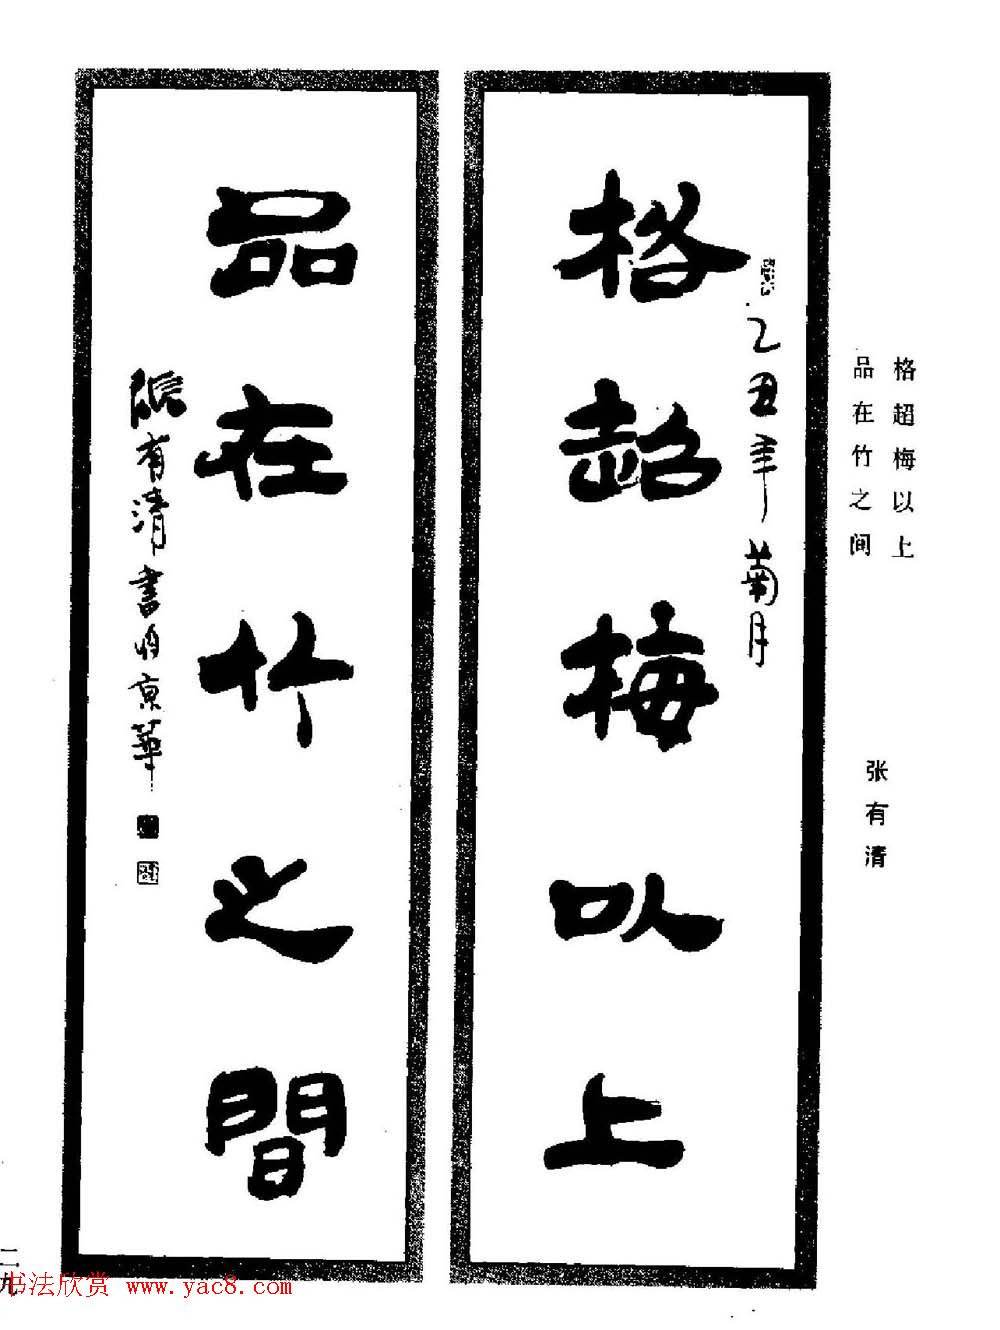 格超梅以上
乙丑年菊月
品在竹之間
張有清書于京華
格超梅以上
品在竹之间
张有清
二九
书法欣赏 www.yac8.com